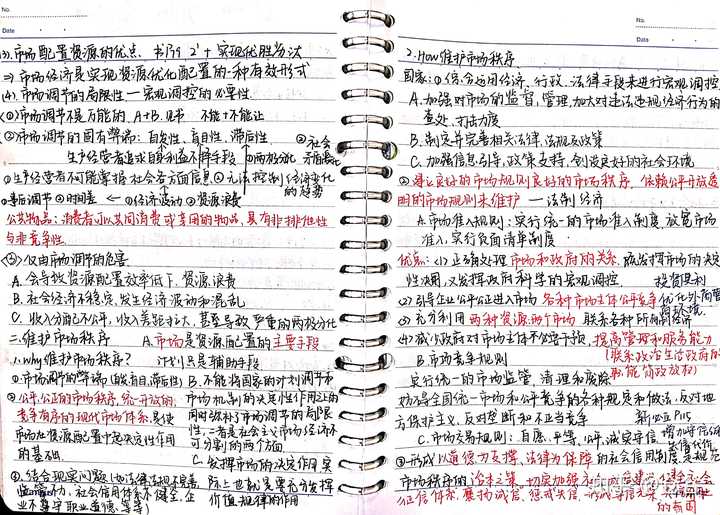 No.
Date
(3). 市场配置资源的优点、书P19 2' + 实现优胜劣汰
⇒ 市场经济是实现资源优化配置的一种有效形式
(4). 市场调节的局限性—宏观调控的必要性
①市场调节不是万能的. A+B.见书 不能+不能让
②市场调节的固有弊端：自发性、盲目性、滞后性
生产经营者追求自身利益不择手段 ②两极分化 ③社会
①生产经营者不可能掌握社会各方面信息 ④无法控制经济变化的趋势
事后调节 ②时间差 ← ①经济波动 ②资源浪费
公共物品：消费者可以共同消费或享用的物品，具有非排他性
与非竞争性
(5) 仅由市场调节的危害
A. 会导致资源配置效率低下，资源浪费
B. 社会经济不稳定，发生经济波动和混乱
C. 收入分配不公平，收入差距扩大，甚至导致严重的两极分化
二、维护市场秩序 A.市场是资源配置的主要手段
1. why维护市场秩序？ 计划只是辅助手段
①.市场调节的弊端(自发、盲目、滞后性) B.不能将国家的计划调节和
②公平、公正的市场秩序，统一开放的， 市场机制的决定性作用之间
竞争有序的现代市场体系，是使 同时弥补市场调节的局限
市场在资源配置中起决定性作用 性，二者是社会主义市场经济不
的基础. 可分割的两个方面
C. 发挥市场的决定作用，实
③. 结合现实问题(如法律法规不完善 际上也就是要充分发挥
监管不力、社会信用体系不健全、企 价值规律的作用
业不遵守职业道德等等)
No.
Date
2. How维护市场秩序
国家：①综合运用经济、行政、法律手段来进行宏观调控
A. 加强对市场的监督、管理，加大对违法违规经济行为的
查处、打击力度
B. 制定并完善相关法律、法规及政策
C. 加强信息引导，政策支持，创设良好的社会环境
②建立良好的市场规则良好的市场秩序，依赖公平开放透
明的市场规则来维护 — 法制经济
A. 市场准入规则：实行统一的市场准入制度，放宽市场
准入，实行负面清单制度
优点：(1)正确处理市场和政府的关系，既发挥市场的决定
性决用，又发挥政府科学的宏观调控. 投资便利
(2)引导企业公平公正进入市场 各种市场主体公平竞争 优化外商营商环境
(3)充分利用两种资源两个市场 联系各种所有制经济
(4)减少政府对市场主体不必要干预，提高管理和服务能力
B. 市场竞争规则 (联系政治生活政府的职能简政放权)
实行统一的市场监管，清理和废除
妨碍全国统一市场和公平竞争的各种规定和做法，反对地
方保护主义，反对垄断和不正当竞争 新必二P15
C. 市场交易规则：自愿、平等、公平、诚实守信
③形成以道德为支撑、法律为保障的社会信用制度，是规范
市场秩序的治本之策，切实加强
征信体系，褒扬诚信，惩戒失信
的氛围